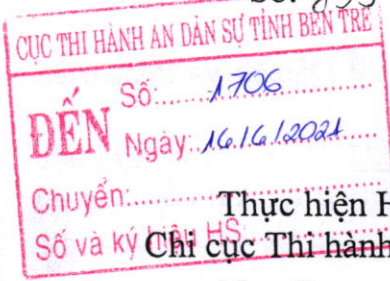 CỤC THI HÀNH ÁN DÂN SỰ TỈNH BẾN TRE
ĐẾN
Số: 1706
Ngày: 16/6/2021
Chuyển:
Thực hiện H
Số và ký hiệu HS
Chi cục Thi hành